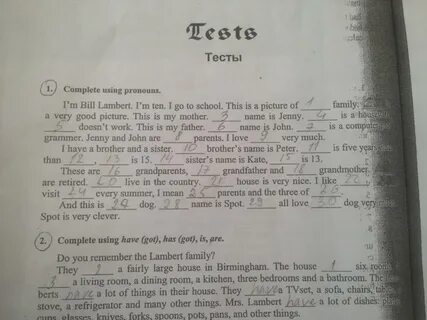 Tests
Тесты
1. Complete using pronouns.
I'm Bill Lambert. I'm ten. I go to school. This is a picture of 1 family.
a very good picture. This is my mother. 3 name is Jenny. 4 is a house
5 doesn't work. This is my father. 6 name is John. 7 is a compute
grammer. Jenny and John are 8 parents. I love 9 very much.
I have a brother and a sister. 10 brother's name is Peter. 11 is five years
than 12, 13 is 15. 14 sister's name is Kate, 15 is 13.
These are 16 grandparents, 17 grandfather and 18 grandmother.
are retired. live in the country. 21 house is very nice. I like
visit 24 every summer, I mean 25 parents and the three of
And this is dog. 28 name is Spot. 29 all love 30 dog very
Spot is very clever.
2. Complete using have (got), has (got), is, are.
Do you remember the Lambert family?
They a fairly large house in Birmingham. The house 1 six room
3 a living room, a dining room, a kitchen, three bedrooms and a bathroom. The
berts have a lot of things in their house. They have a TVset, a sofa, chairs,
stove, a refrigerator and many other things. Mrs. Lambert have a lot of dishes:
cups, glasses, knives, forks, spoons, pots, pans, and other things.